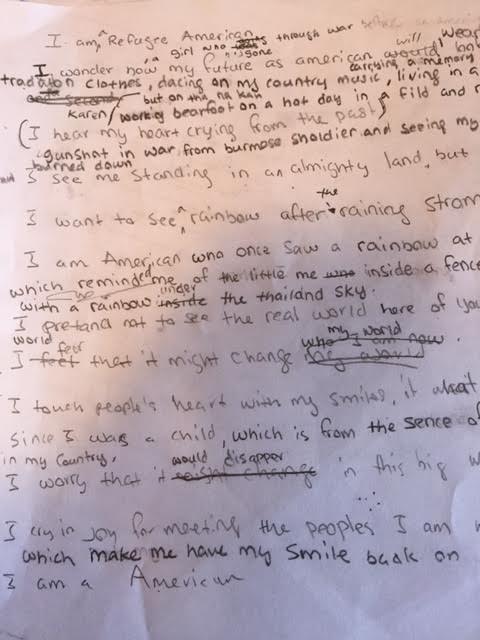 I am a Refugee American
, a girl who is gone through war before an
I wonder how my future as american will wear
traditon clothes, dacing on my country music, living in a
carrying a memory
Karen/ working bearfoot on a hot day in a fild and
but on tha na kah
(I hear my heart crying from the past)
gunshot in war from burmose sholdier and seeing my
burned down
I see me standing in an almighty land, but
I want to see a rainbow after the raining strom
I am American who once saw a rainbow at
which reminded me of the little me inside a fence
with a rainbow under the thailand sky.
I pretand not to see the real world here of
world
I fear that it might change my world
I touch people's heart with my smiles, it
since I was a child, which is from the sence of
in my country,
I worry that it would disapper in this big
I cry in joy for meeting the peoples I am
which make me have my smile back on
I am a American